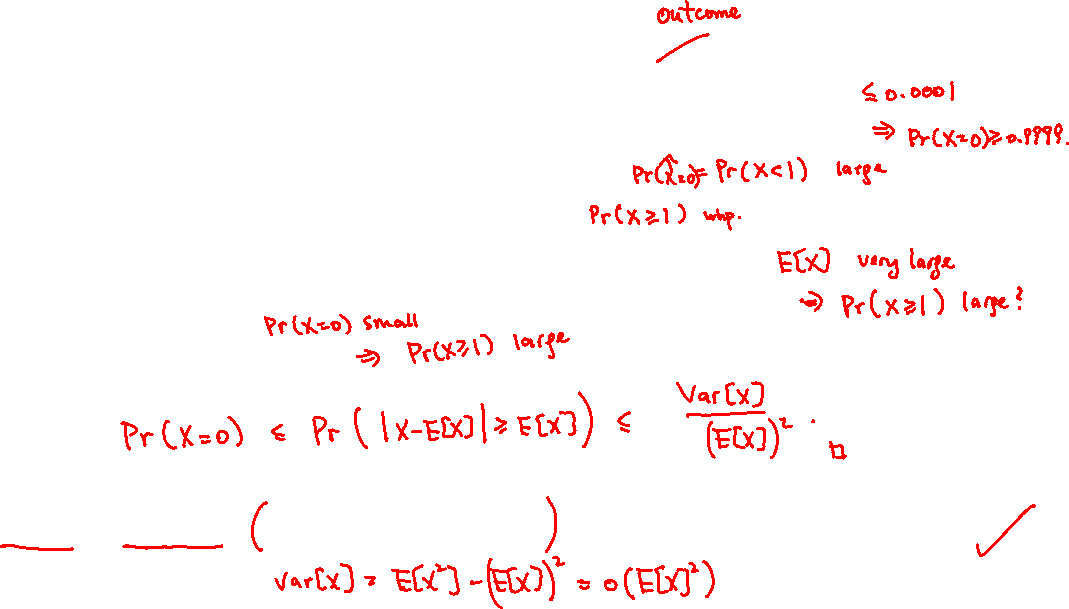 outcome
≤ 0.0001
⇒ Pr(X=0) ≥ 0.9999.
Pr(X=0) = Pr(X<1) large
Pr(X≥1) whp.
E[X] very large
⇒ Pr(X≥1) large?
Pr(X=0) small
⇒ Pr(X≥1) large
Pr(X=0) ≤ Pr(|X-E[X]| ≥ E[X]) ≤ Var[X] / (E[X])² . □
( )
Var[X] = E[X²] - (E[X])² = o(E[X]²)